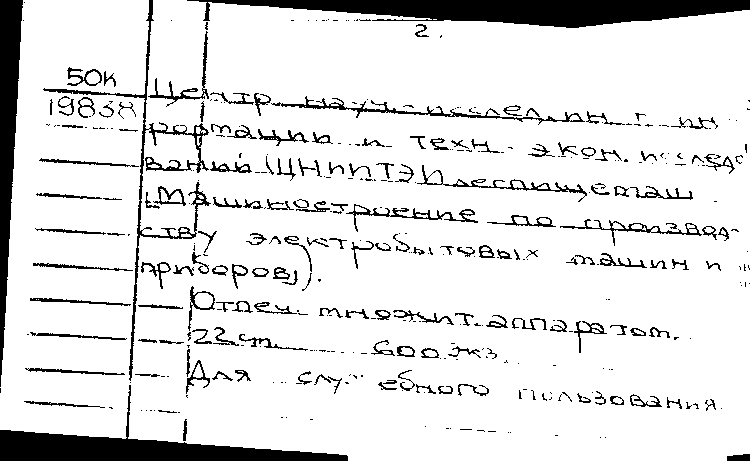 2.
50К
19838
Центр науч.-исслед. ин-т ин
формации и техн.-экон. исследо
ваний (ЦНИИТЭИлегпищемаш
"Машиностроение по производ-
ству электробытовых машин и
приборов").
Отпеч. множит. аппаратом.
22см. 600 экз.
Для служебного пользования